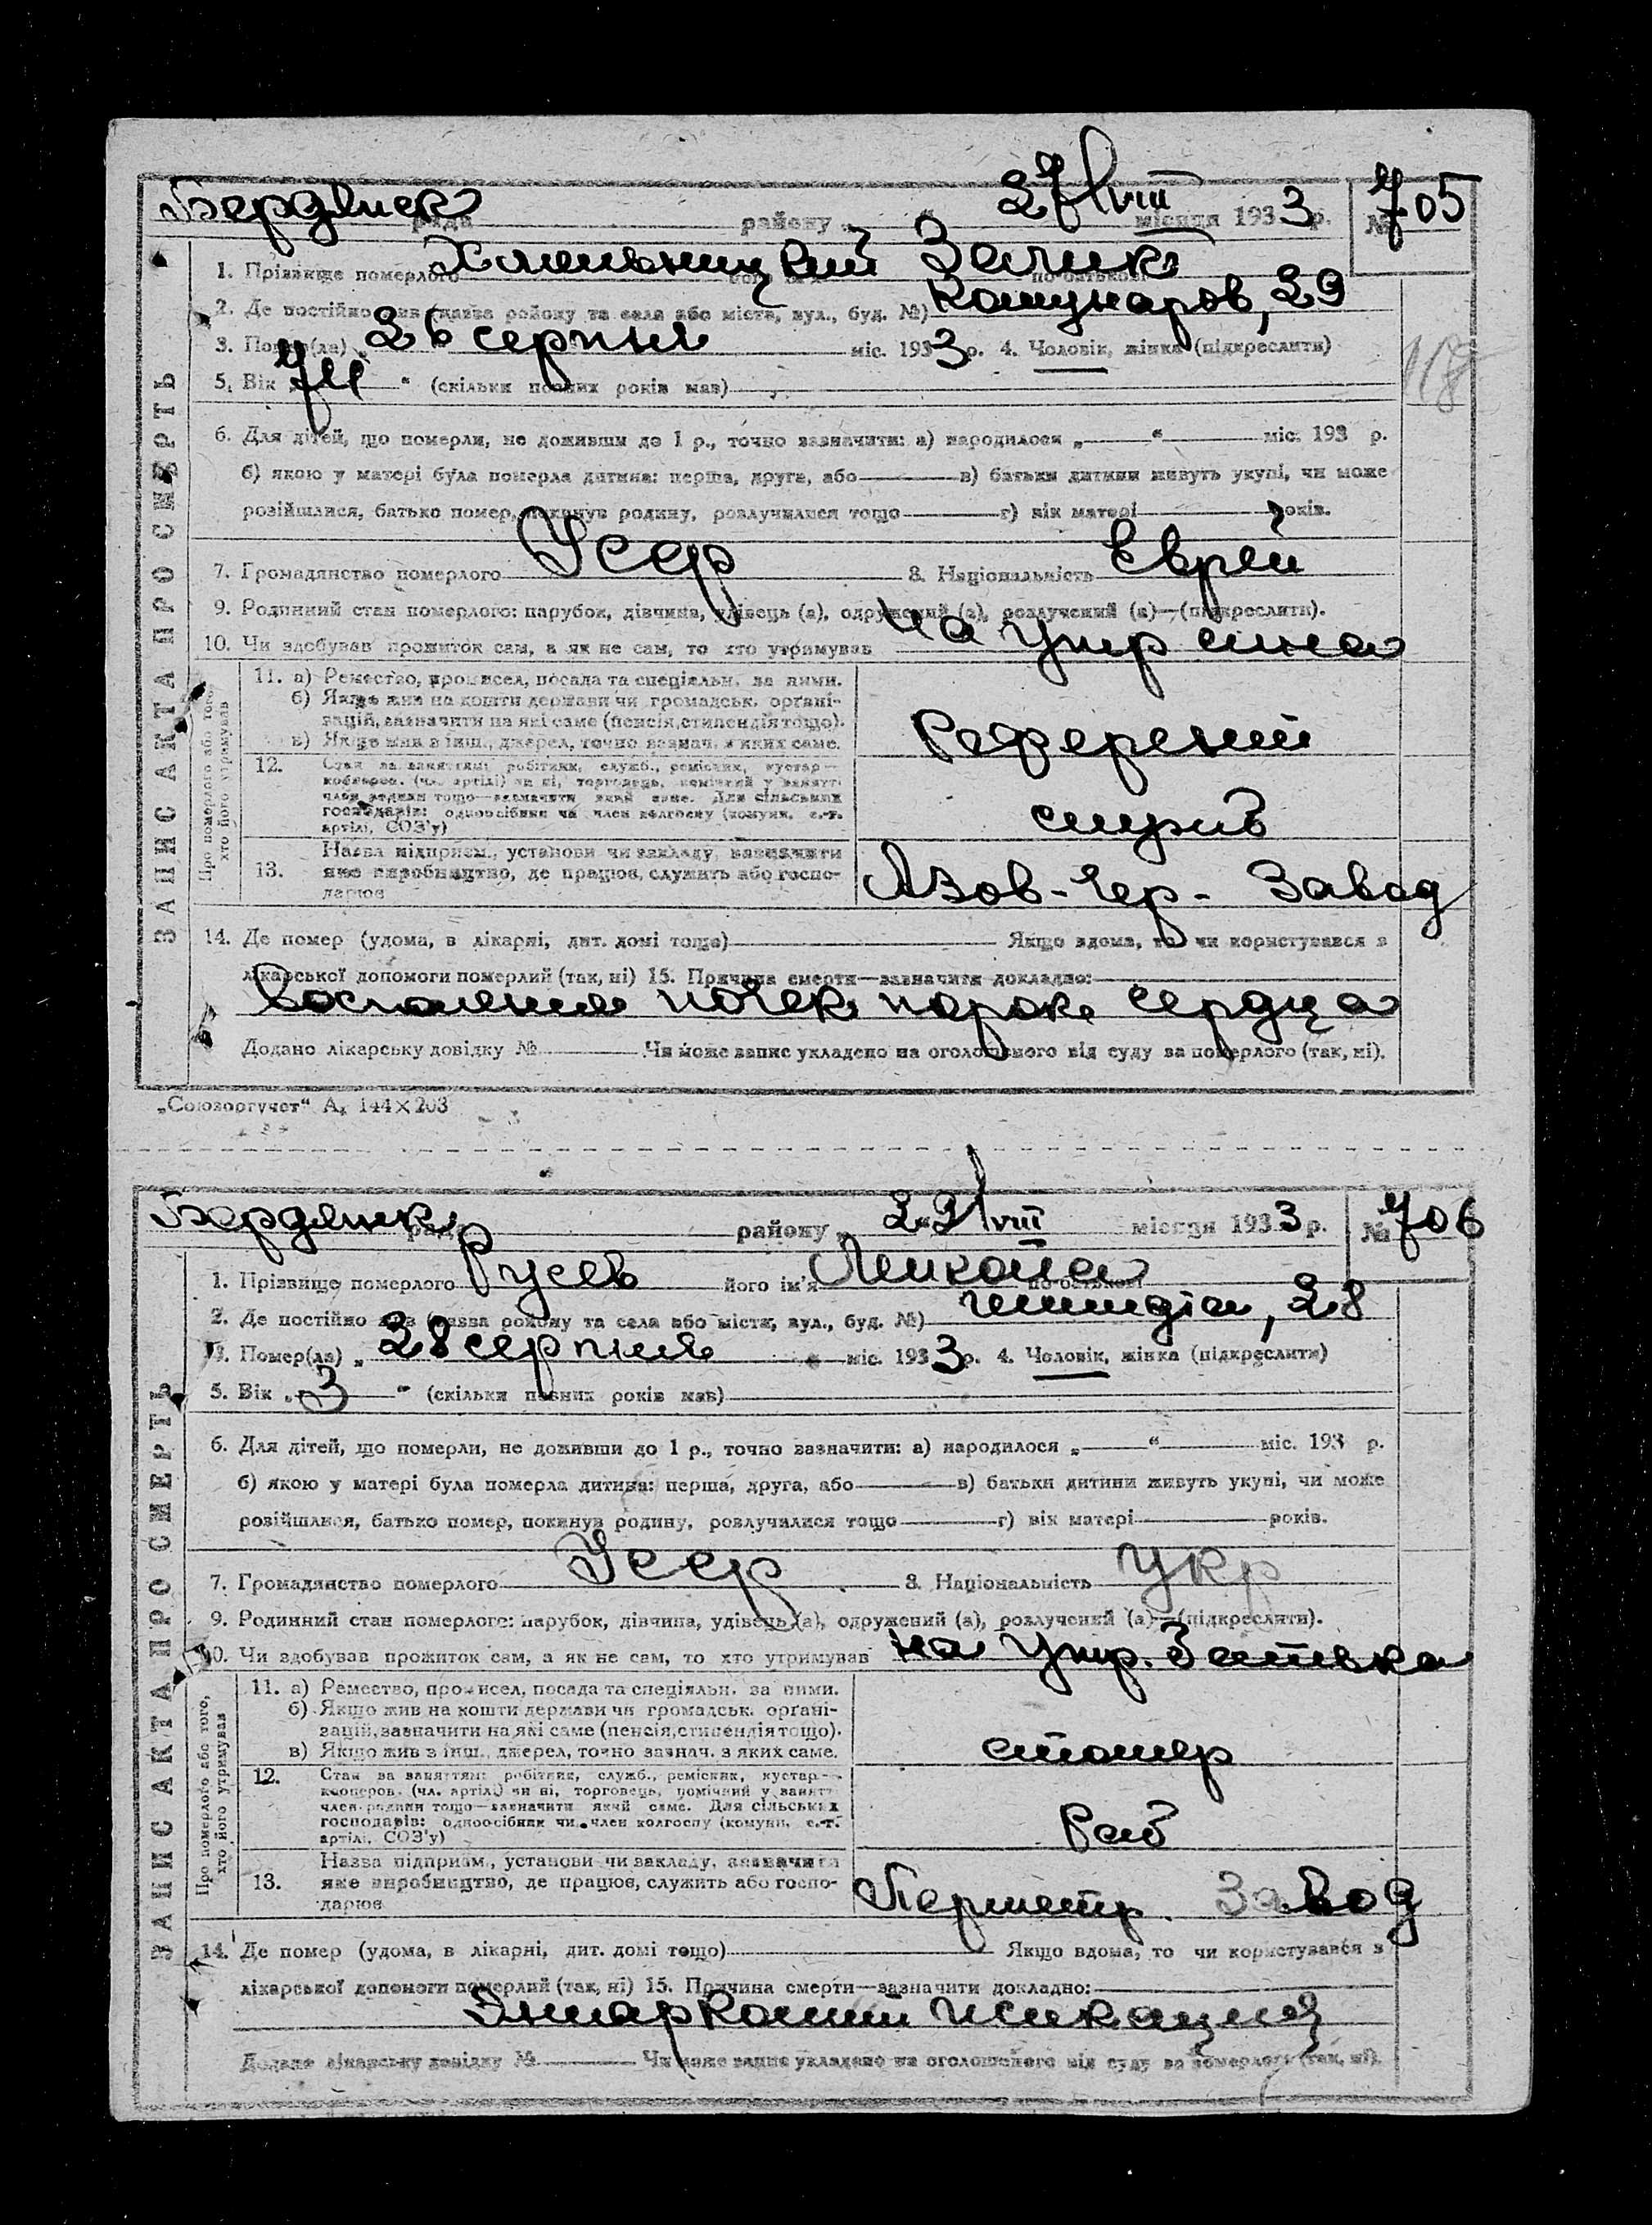 Бердянск рада району „ 27/VIII місяця 1933 р. № 705
1. Прізвище померлого Хмельницкий Залик по-батькові
2. Де постійно жив (назва району та села або міста, вул., буд. №) Комунаров, 29
3. Помер(ла) „ 26 серпня міс. 1933 р. 4. Чоловік, жінка (підкреслити)
5. Вік „ “ (скільки повних років мав)
6. Для дітей, що померли, не доживши до 1 р., точно зазначити: а) народилося „ “ міс. 193 р.
б) якою у матері була померла дитина: перша, друга, або в) батьки дитини живуть укупі, чи може
розійшлися, батько помер, покинув родину, розлучилися тощо г) вік матері років.
7. Громадянство померлого Усср 8. Національність Еврей
9. Родинний стан померлого: парубок, дівчина, удівець (а), одружений (а), розлучений (а)—(підкреслити).
10. Чи здобував прожиток сам, а як не сам, то хто утримував на утр сина
ЗАПИС АКТА ПРО СМЕРТЬ
Про померлого або того, хто його утримував
11. а) Ремество, промисел, посада та спеціяльн. за ними.
б) Якщо жив на кошти держави чи громадськ. органі-
зацій, зазначити на які саме (пенсія, стипендія тощо).
в) Якщо жив з інш., джерел, точно зазнач. з яких саме.
12. Стан за заняттям: робітник, служб., ремісник, кустар—
кооперов. (чл. артілі) чи ні, торговець, помічний у занятт.
член родини тощо—зазначити який саме. Для сільських
господарів: одноосібник чи член колгоспу (комуни, с.-г.
артілі, СОЗ'у)
13. Назва підприєм., установи чи закладу, зазначити
яке виробництво, де працює, служить або госпо-
дарює
Азов-Чер- Завод
14. Де помер (удома, в лікарні, дит. домі тощо) Якщо вдома, то чи користувався з
лікарської допомоги померлий (так, ні) 15. Причина смерти—зазначити докладно:
Воспаление почек порок сердца
Додано лікарську довідку № Чи може запис укладено на оголошеного від суду за померлого (так, ні).
„Союзоргучет“ А, 144×203
Бердянск рада району „ 29/VIII місяця 1933 р. № 706
1. Прізвище померлого Русев його ім'я Микола по-батькові
2. Де постійно жив (назва району та села або міста, вул., буд. №) 28
3. Помер(ла) „ 28 серпня “ міс. 1933 р. 4. Чоловік, жінка (підкреслити)
5. Вік „ 3 “ (скільки повних років мав)
6. Для дітей, що померли, не доживши до 1 р., точно зазначити: а) народилося „ “ міс. 193 р.
б) якою у матері була померла дитина: перша, друга, або в) батьки дитини живуть укупі, чи може
розійшлися, батько помер, покинув родину, розлучилися тощо г) вік матері років.
7. Громадянство померлого Усср 8. Національність Укр
9. Родинний стан померлого: парубок, дівчина, удівець (а), одружений (а), розлучений (а)—(підкреслити).
10. Чи здобував прожиток сам, а як не сам, то хто утримував на утр. Батька
ЗАПИС АКТА ПРО СМЕРТЬ
Про померлого або того, хто його утримував
11. а) Ремество, промисел, посада та спеціяльн. за ними.
б) Якщо жив на кошти держави чи громадськ. органі-
зацій, зазначити на які саме (пенсія, стипендія тощо).
в) Якщо жив з інш., джерел, точно зазнач. з яких саме.
столяр
12. Стан за заняттям: робітник, служб., ремісник, кустар—
кооперов. (чл. артілі) чи ні, торговець, помічний у занятт.
член родини тощо—зазначити який саме. Для сільських
господарів: одноосібник чи член колгоспу (комуни, с.-г.
артілі, СОЗ'у)
Роб
13. Назва підприєм., установи чи закладу, зазначити
яке виробництво, де працює, служить або госпо-
дарює
Завод
14. Де помер (удома, в лікарні, дит. домі тощо) Якщо вдома, то чи користувався з
лікарської допомоги померлий (так, ні) 15. Причина смерти—зазначити докладно:
Додано лікарську довідку № Чи може запис укладено на оголошеного від суду за померлого (так, ні).